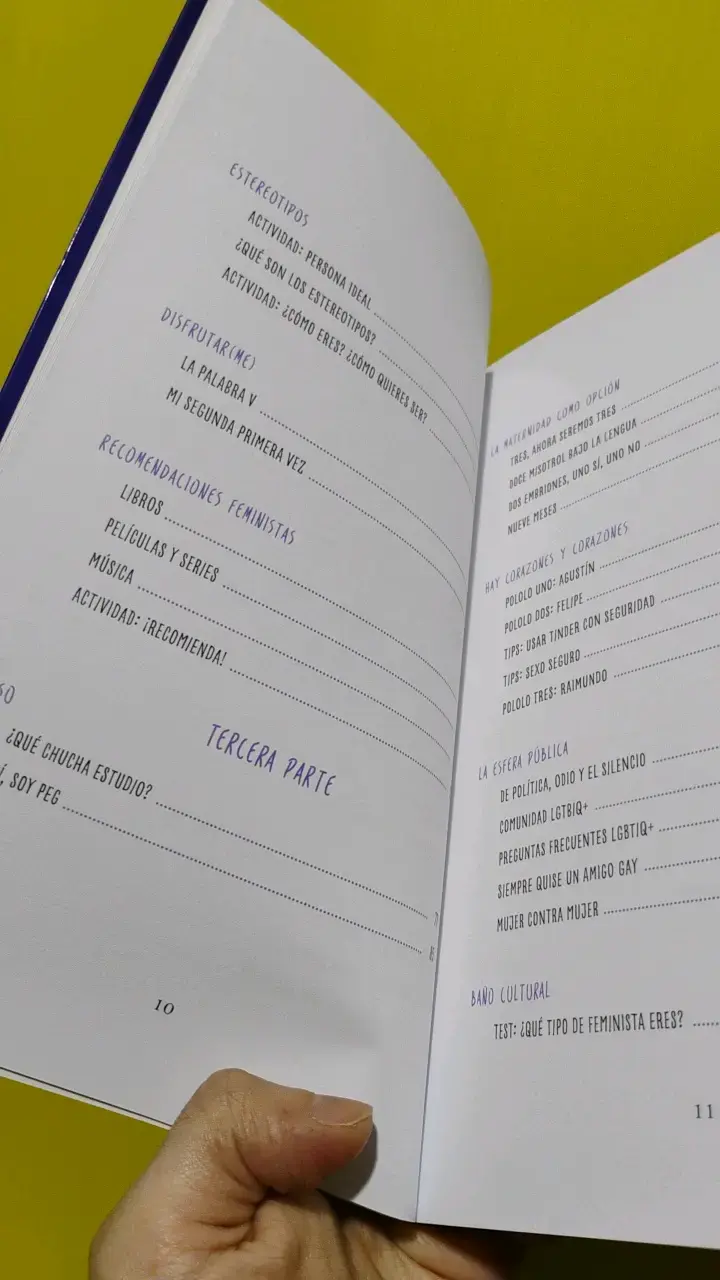 ESTEREOTIPOS
ACTIVIDAD: PERSONA IDEAL
¿QUÉ SON LOS ESTEREOTIPOS?
ACTIVIDAD: ¿CÓMO ERES? ¿CÓMO QUIERES SER?
DISFRUTAR(ME)
LA PALABRA V
MI SEGUNDA PRIMERA VEZ
RECOMENDACIONES FEMINISTAS
LIBROS
PELÍCULAS Y SERIES
MÚSICA
ACTIVIDAD: ¡RECOMIENDA!
TERCERA PARTE
¿QUÉ CHUCHA ESTUDIO?
SOY PEG
10
LA MATERNIDAD COMO OPCIÓN
TRES, AHORA SEREMOS TRES
DOCE MISOTROL BAJO LA LENGUA
DOS EMBRIONES, UNO SÍ, UNO NO
NUEVE MESES
HAY CORAZONES Y CORAZONES
POLOLO UNO: AGUSTÍN
POLOLO DOS: FELIPE
TIPS: USAR TINDER CON SEGURIDAD
TIPS: SEXO SEGURO
POLOLO TRES: RAIMUNDO
LA ESFERA PÚBLICA
DE POLÍTICA, ODIO Y EL SILENCIO
COMUNIDAD LGTBIQ+
PREGUNTAS FRECUENTES LGBTIQ+
SIEMPRE QUISE UN AMIGO GAY
MUJER CONTRA MUJER
BAÑO CULTURAL
TEST: ¿QUÉ TIPO DE FEMINISTA ERES?
11